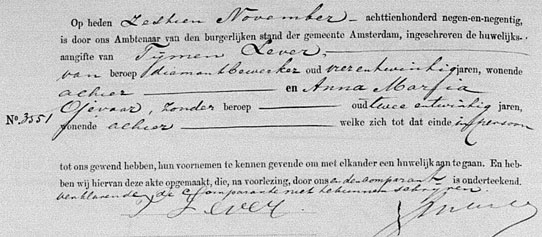 Op heden Zestien November achttienhonderd negen-en-negentig,
is door ons Ambtenaar van den burgerlijken stand der gemeente Amsterdam, ingeschreven de huwelijks-
aangifte van Tijmen Lever,
van beroep diamantbewerker oud vier entwintig jaren, wonende
alhier en Anna Marfia
Ojevaar, zonder beroep oud twee entwintig jaren,
No. 3551
wonende alhier welke zich tot dat einde in persoon
tot ons gewend hebben, hun voornemen te kennen gevende om met elkander een huwelijk aan te gaan. En heb-
ben wij hiervan deze akte opgemaakt, die, na voorlezing, door ons en den comparant is onderteekend.
verklarende de Comparante niet te kunnen schrijven.
T Lever